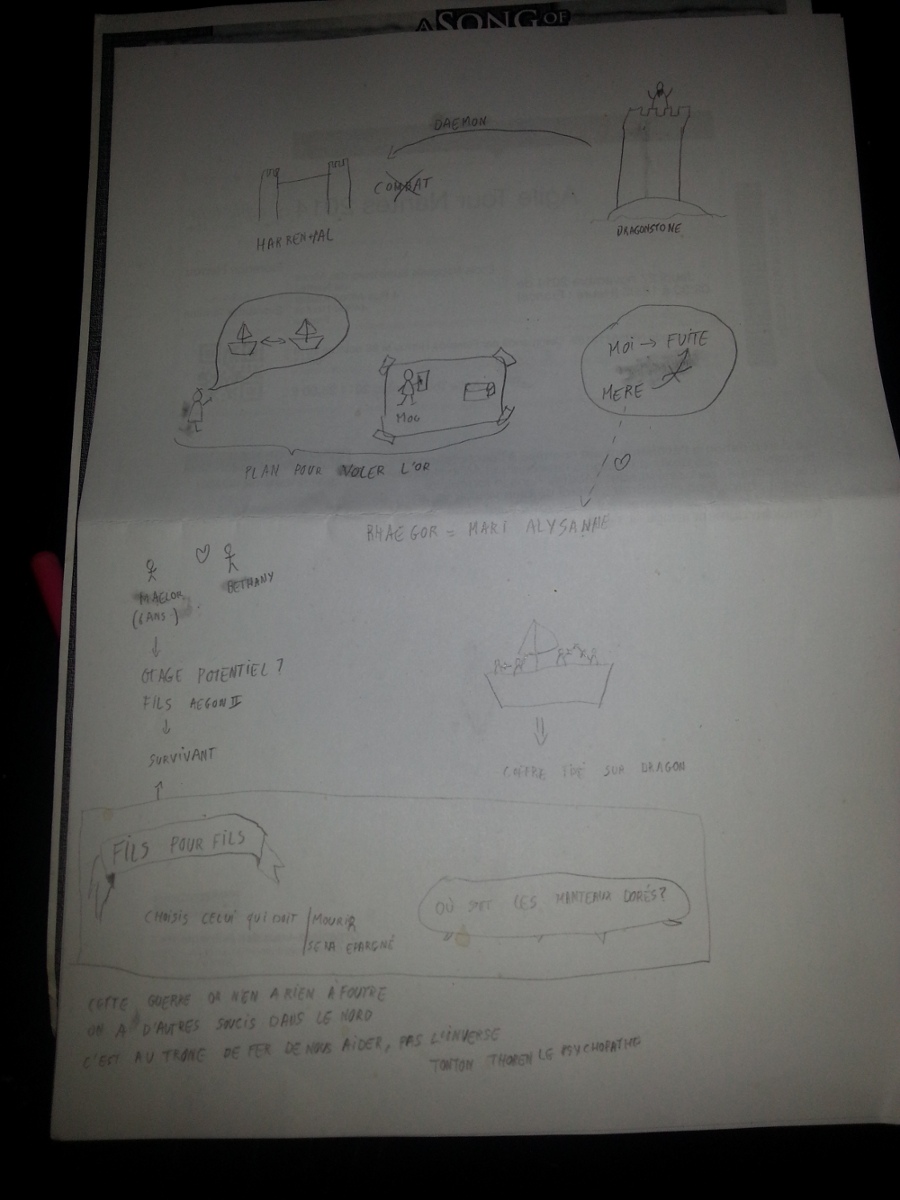 A SONG OF
DAEMON
COMBAT
HARRENHAL
DRAGONSTONE
Agile Tour Nantes 2014
MOI → FUITE
MERE
MOG
PLAN POUR VOLER L'OR
RHAEGOR = MARI ALYSANNE
MAELOR
BETHANY
OTAGE POTENTIEL ?
FILS AEGON II
SURVIVANT
COFFRE SUR DRAGON
FILS POUR FILS
CHOISIS CELUI QUI DOIT MOURIR
SERA EPARGNÉ
OÙ SONT LES MANTEAUX DORÉS ?
CETTE GUERRE ON N'EN A RIEN À FOUTRE
ON A D'AUTRES SOUCIS DANS LE NORD
C'EST AU TRONE DE FER DE NOUS AIDER, PAS L'INVERSE
TONTON THOREN LE PSYCHOPATHE